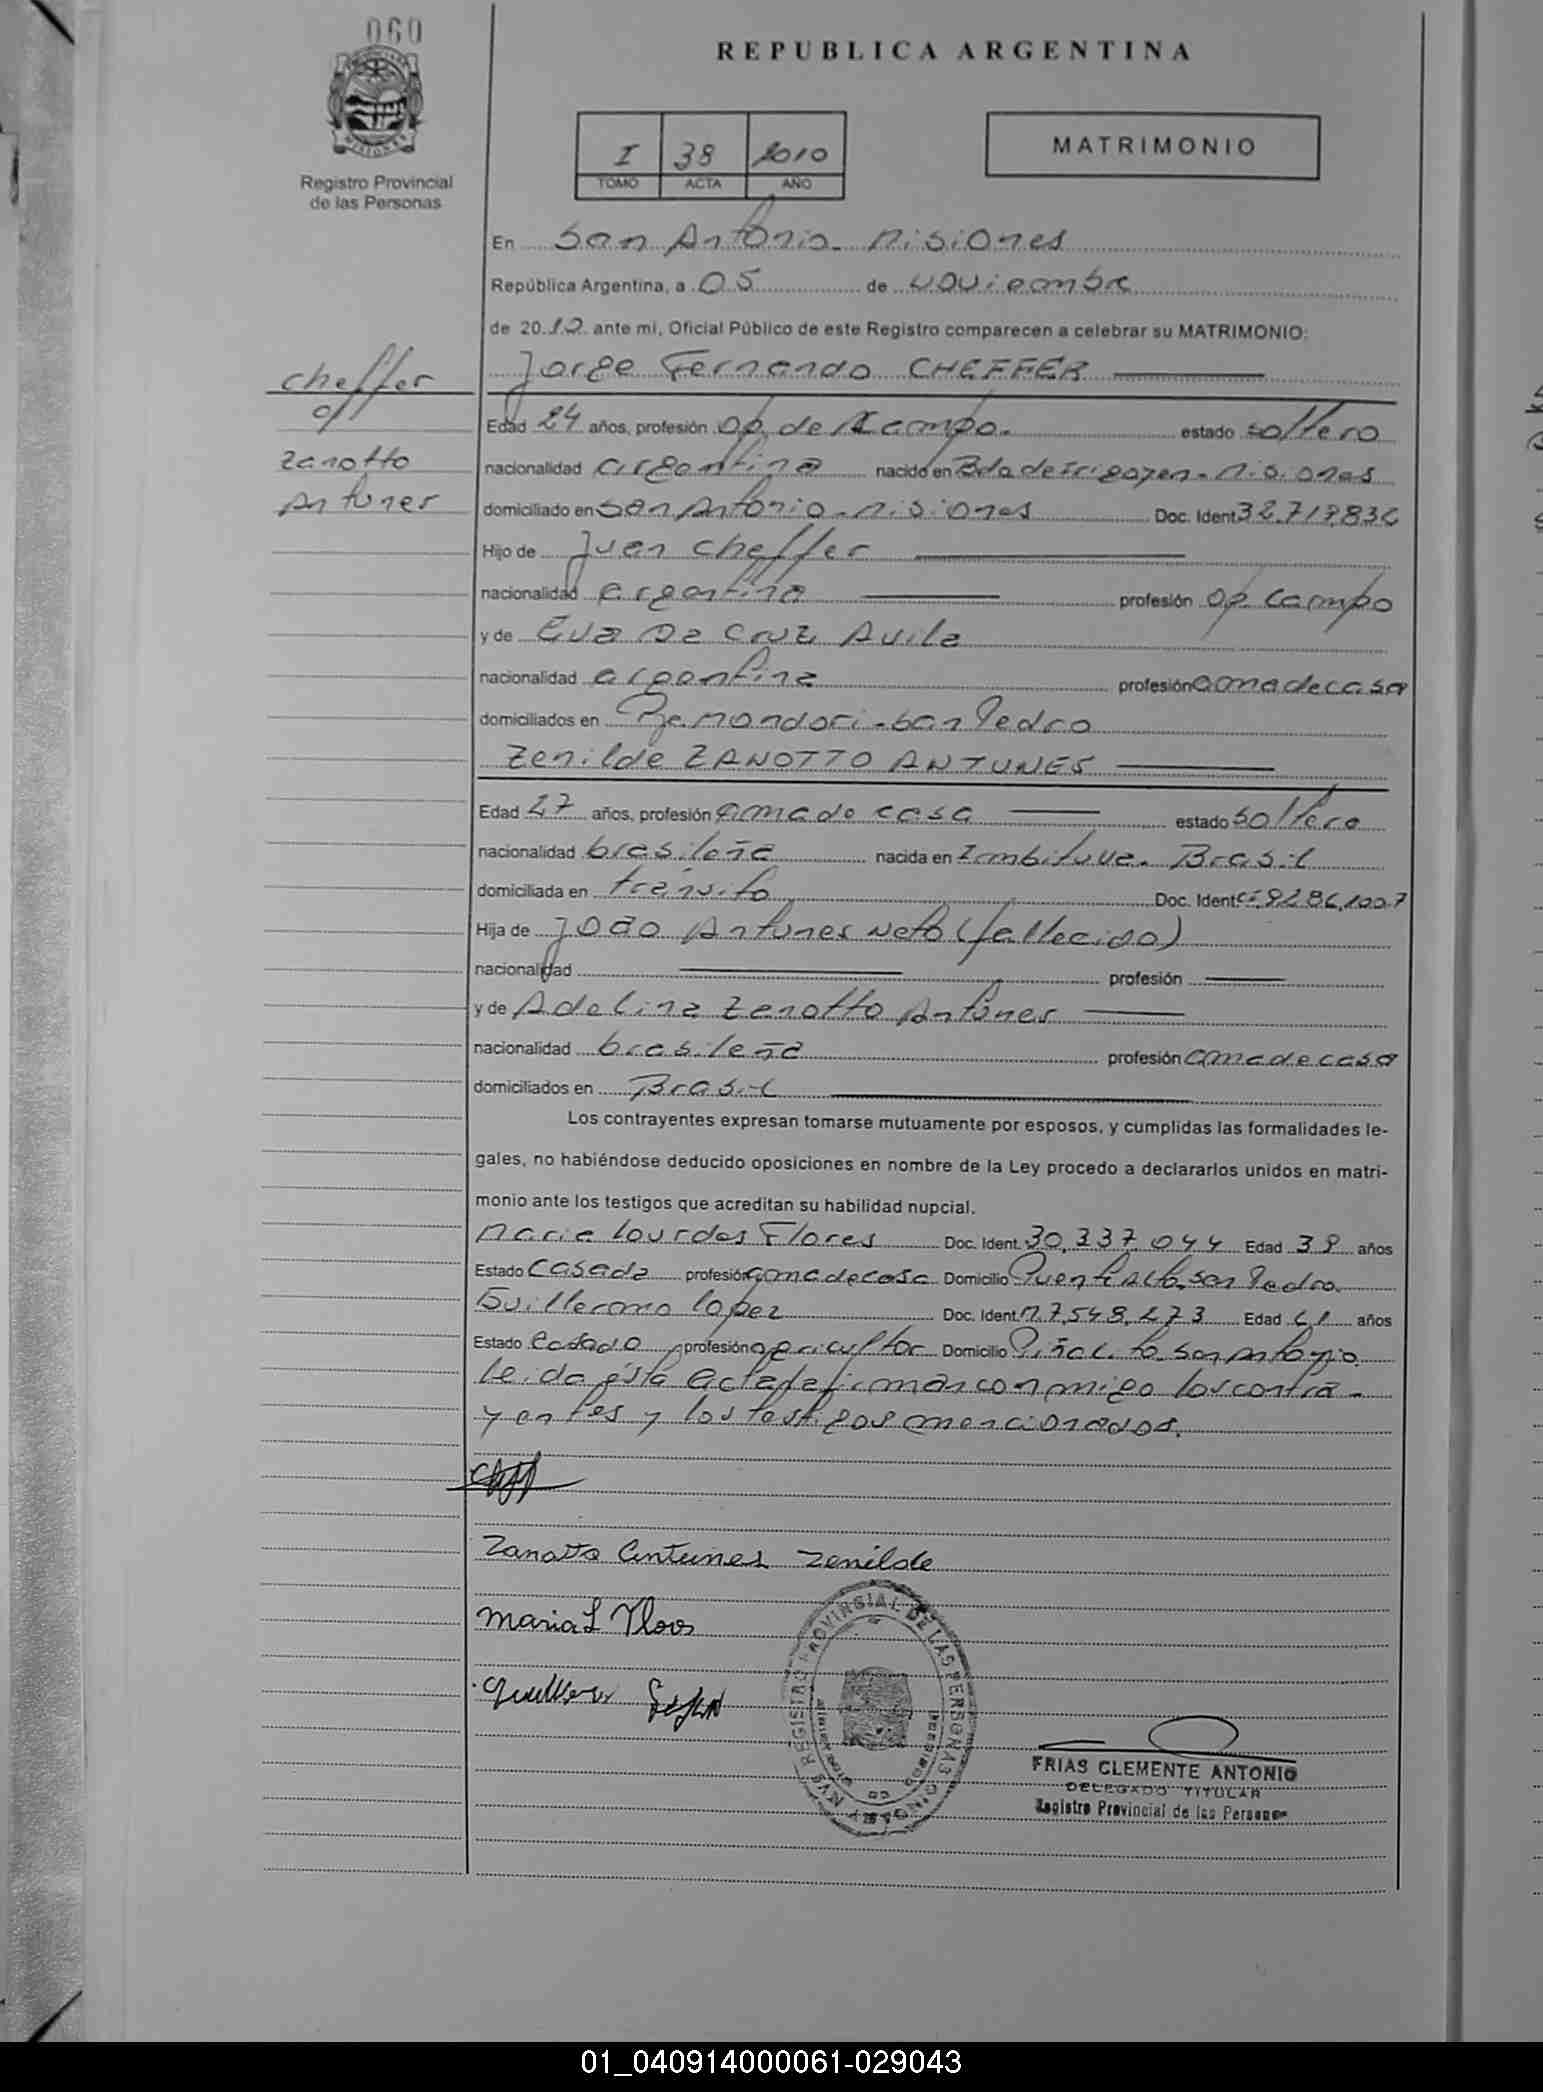 060
REPUBLICA ARGENTINA
Registro Provincial
de las Personas
I 38 2010
TOMO ACTA AÑO
MATRIMONIO
En San Antonio - Misiones
República Argentina, a 05 de noviembre
de 2010 ante mi, Oficial Público de este Registro comparecen a celebrar su MATRIMONIO:
Jorge Fernando CHEFFER
Cheffer
c/
Zanotto
Antunes
Edad 24 años, profesión op. de campo. estado soltero
nacionalidad argentina nacido en Bdo de Irigoyen - Misiones
domiciliado en San Antonio - Misiones Doc. Ident 32.717.836
Hijo de Juan Cheffer
nacionalidad argentina profesión op campo
y de Eva Da Cruz Avila
nacionalidad argentina profesión ama de casa
domiciliados en Pje. Mondori - San Pedro
Zenilde ZANOTTO ANTUNES
Edad 27 años, profesión ama de casa estado soltera
nacionalidad brasileña nacida en Imbituva - Brasil
domiciliada en tránsito Doc. Ident 9286.100.7
Hija de João Antunes Neto (fallecido)
nacionalidad profesión
y de Adelina Zanotto Antunes
nacionalidad brasileña profesión ama de casa
domiciliados en Brasil
Los contrayentes expresan tomarse mutuamente por esposos, y cumplidas las formalidades le-
gales, no habiéndose deducido oposiciones en nombre de la Ley procedo a declararlos unidos en matri-
monio ante los testigos que acreditan su habilidad nupcial.
Maria Lourdes Flores Doc. Ident. 30.337.044 Edad 39 años
Estado Casada profesión ama de casa Domicilio Puente Alto - San Pedro
Guillermo Lopez Doc. Ident M.7.548.273 Edad 61 años
Estado Casado profesión agricultor Domicilio Piñalito - San Antonio
Leida ésta acta la firman conmigo los contra-
yentes y los testigos mencionados.
Zanotto Antunes Zenilde
Maria L Flores
REGISTRO PROVINCIAL DE LAS PERSONAS
FRIAS CLEMENTE ANTONIO
DELEGADO TITULAR
Registro Provincial de las Personas
01_040914000061-029043